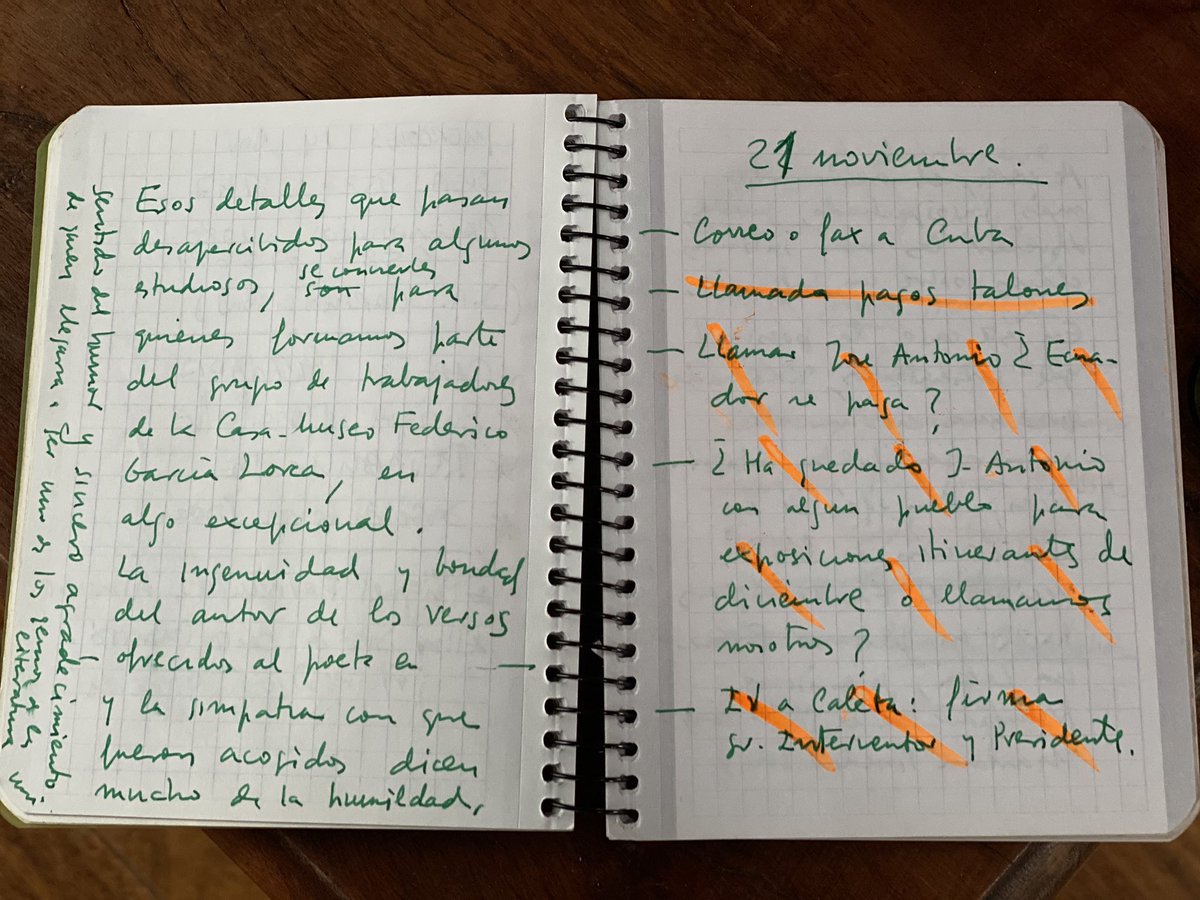 Esos detalles que pasan
desapercibidos para algunos
estudiosos, se convierten
son para
quienes formamos parte
del grupo de trabajadores
de la Casa-museo Federico
García Lorca, en
algo excepcional.
La ingenuidad y bondad
del autor de los versos
ofrecidos al poeta en
y la simpatía con que
fueron acogidos dicen
mucho de la humildad,
sentido del humor y sincero agradecimiento
de quien llegaría a ser uno de los genios de la
literatura
21 noviembre.
— Correo o fax a Cuba
— Llamada pagos talones
— Llamar José Antonio ¿ Ecua-
dor se paga ?
— ¿ Ha quedado J. Antonio
con algun pueblo para
exposiciones itinerantes de
diciembre o llamamos
nosotros ?
— Ir a Caleta: firma
sr. Interventor y Presidente.